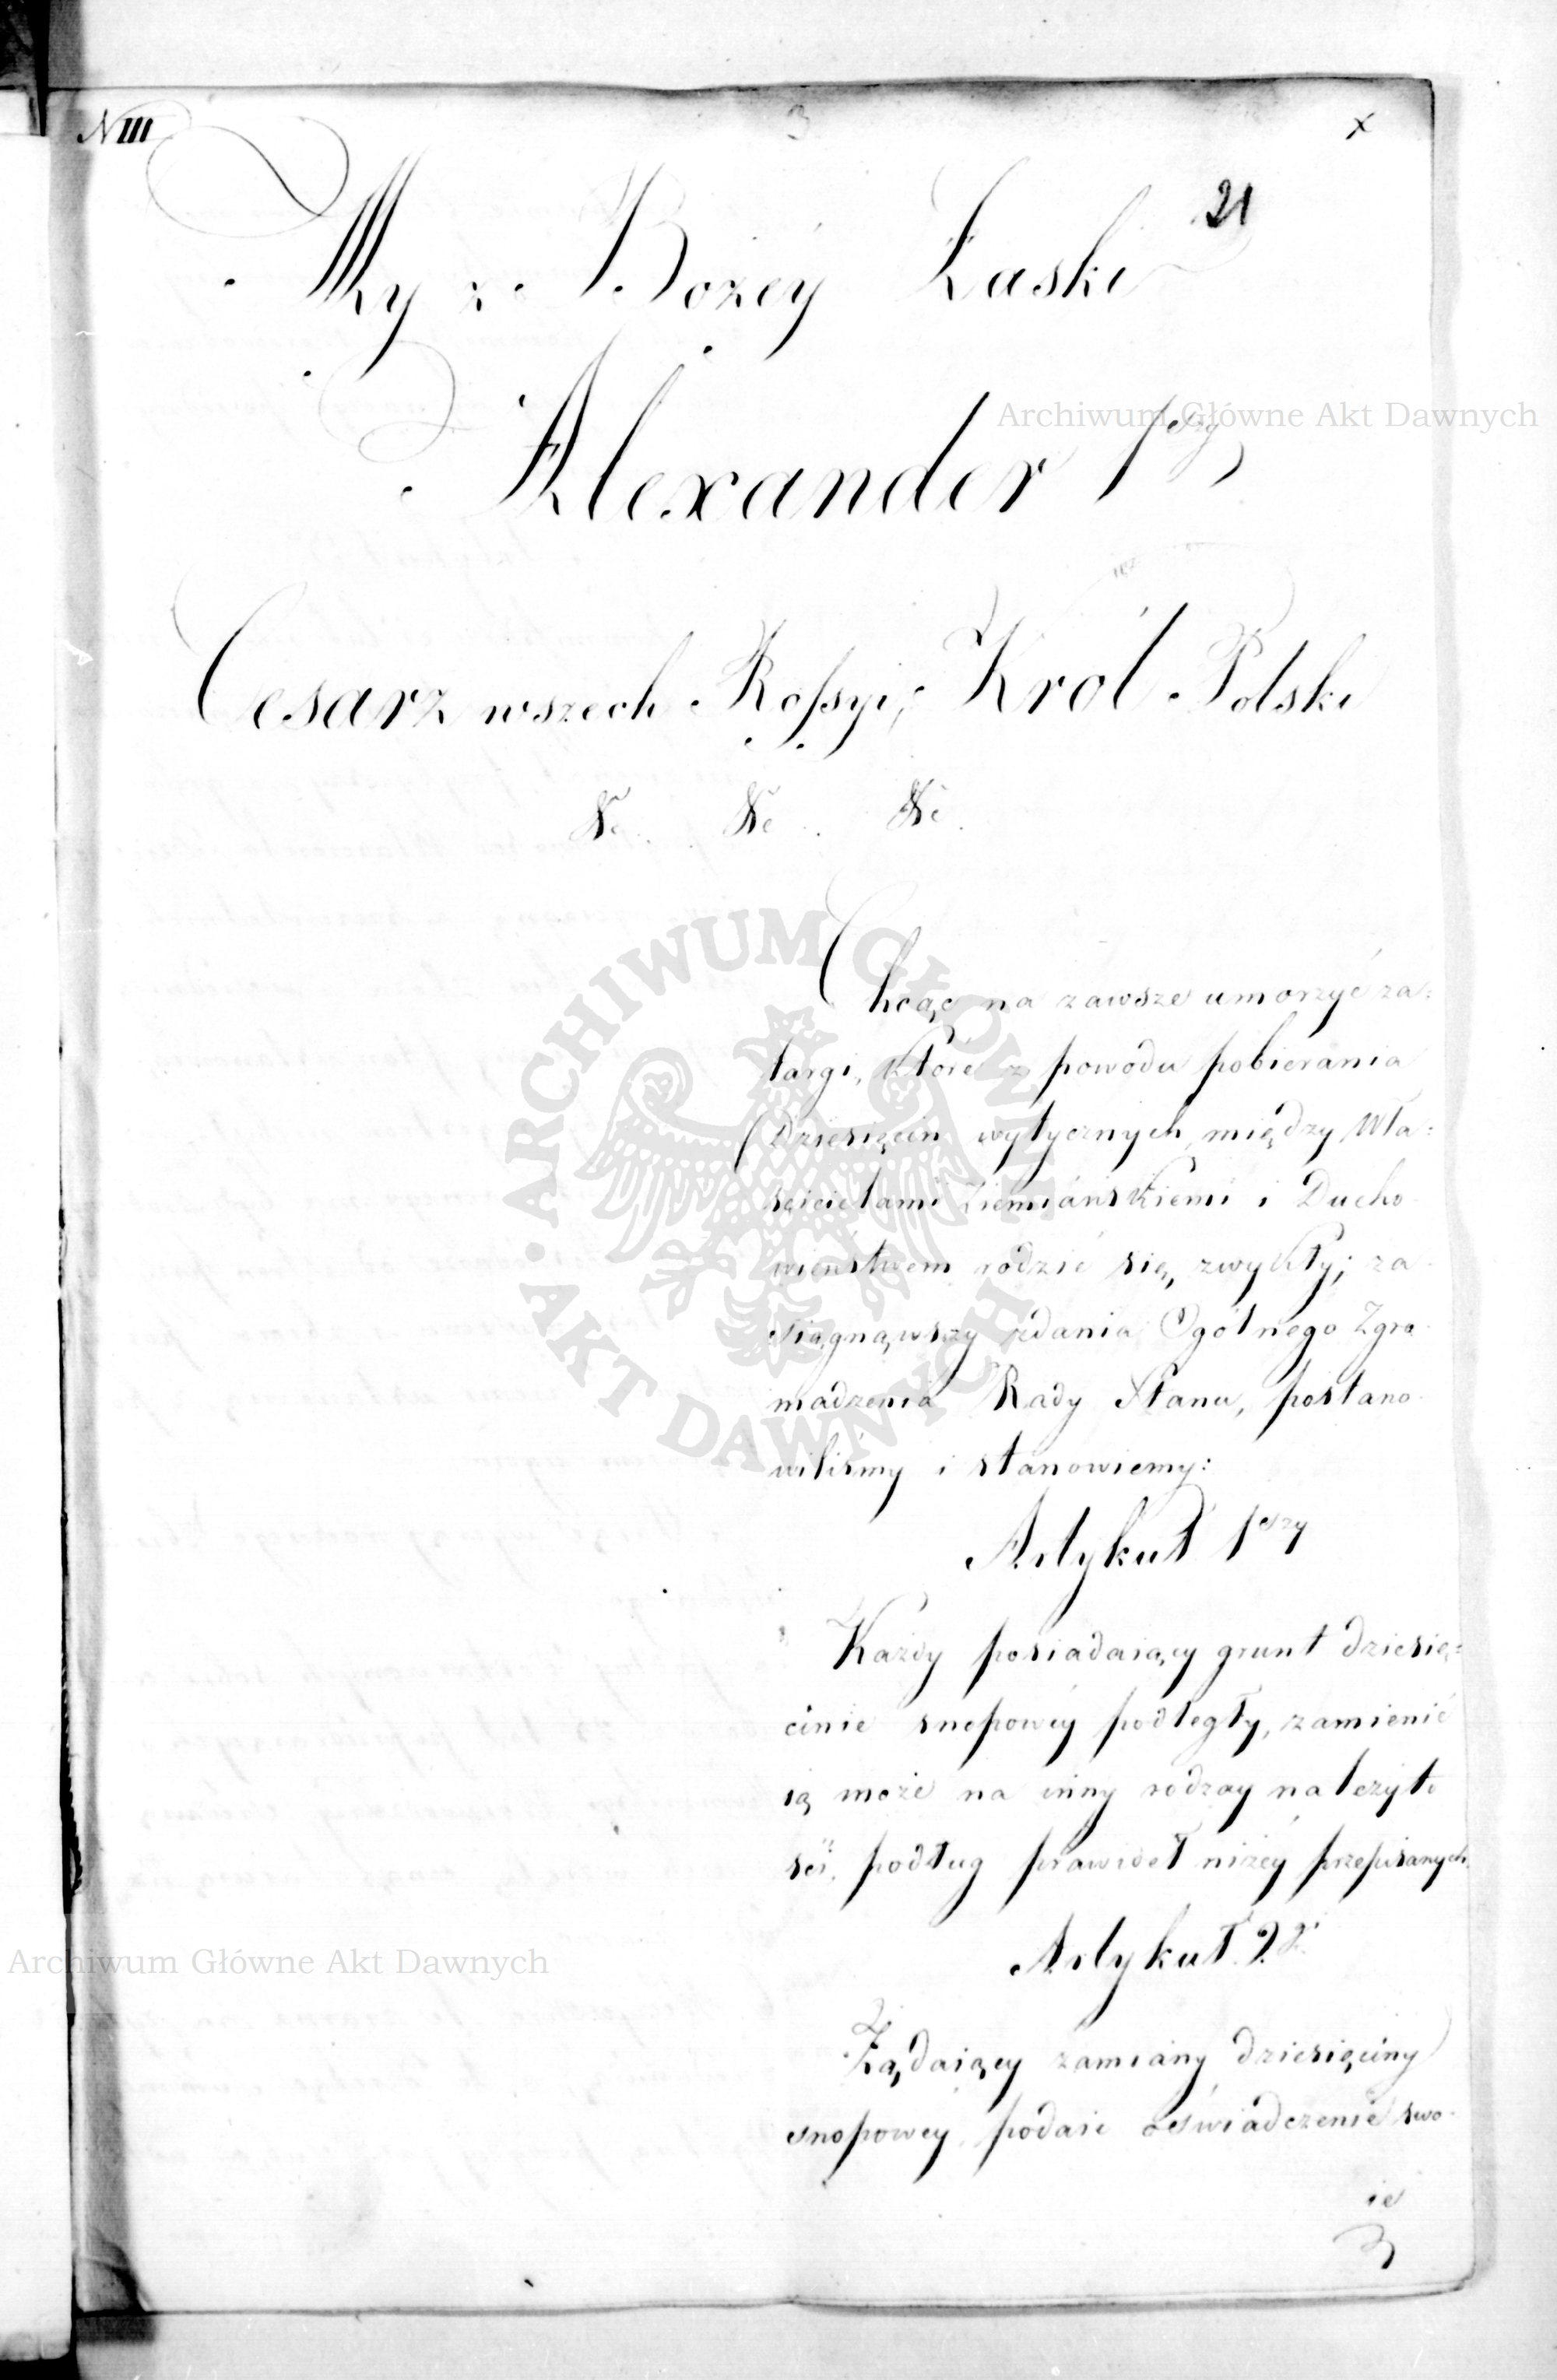 N III
3
x
21
My z Bożéy Łaski
Alexander 1szy
Cesarz wszech Rossyi, Król Polski
&c. &c. &c.
Chcąc na zawsze umorzyć za=
targi, które z powodu pobierania
Dziesięcin wytycznych między Wła=
ścicielami Ziemiańskiemi i Ducho
wieństwem rodzić się zwykły; za
siągnąwszy zdania Ogólnego Zgro
madzenia Rady Stanu, postano
wiliśmy i stanowiemy:
Artykuł 1szy
Każdy posiadaiący grunt dziesię=
cinie snopowéy podległy, zamienić
ią może na inny rodzay należyto
ści, podług prawideł niżéy przepisanych
Artykuł 2gi
Żądaiący zamiany dziesięciny
snopowey, podaie oświadczenie swo
ie
3
Archiwum Główne Akt Dawnych
ARCHIWUM GŁÓWNE AKT DAWNYCH
Archiwum Główne Akt Dawnych